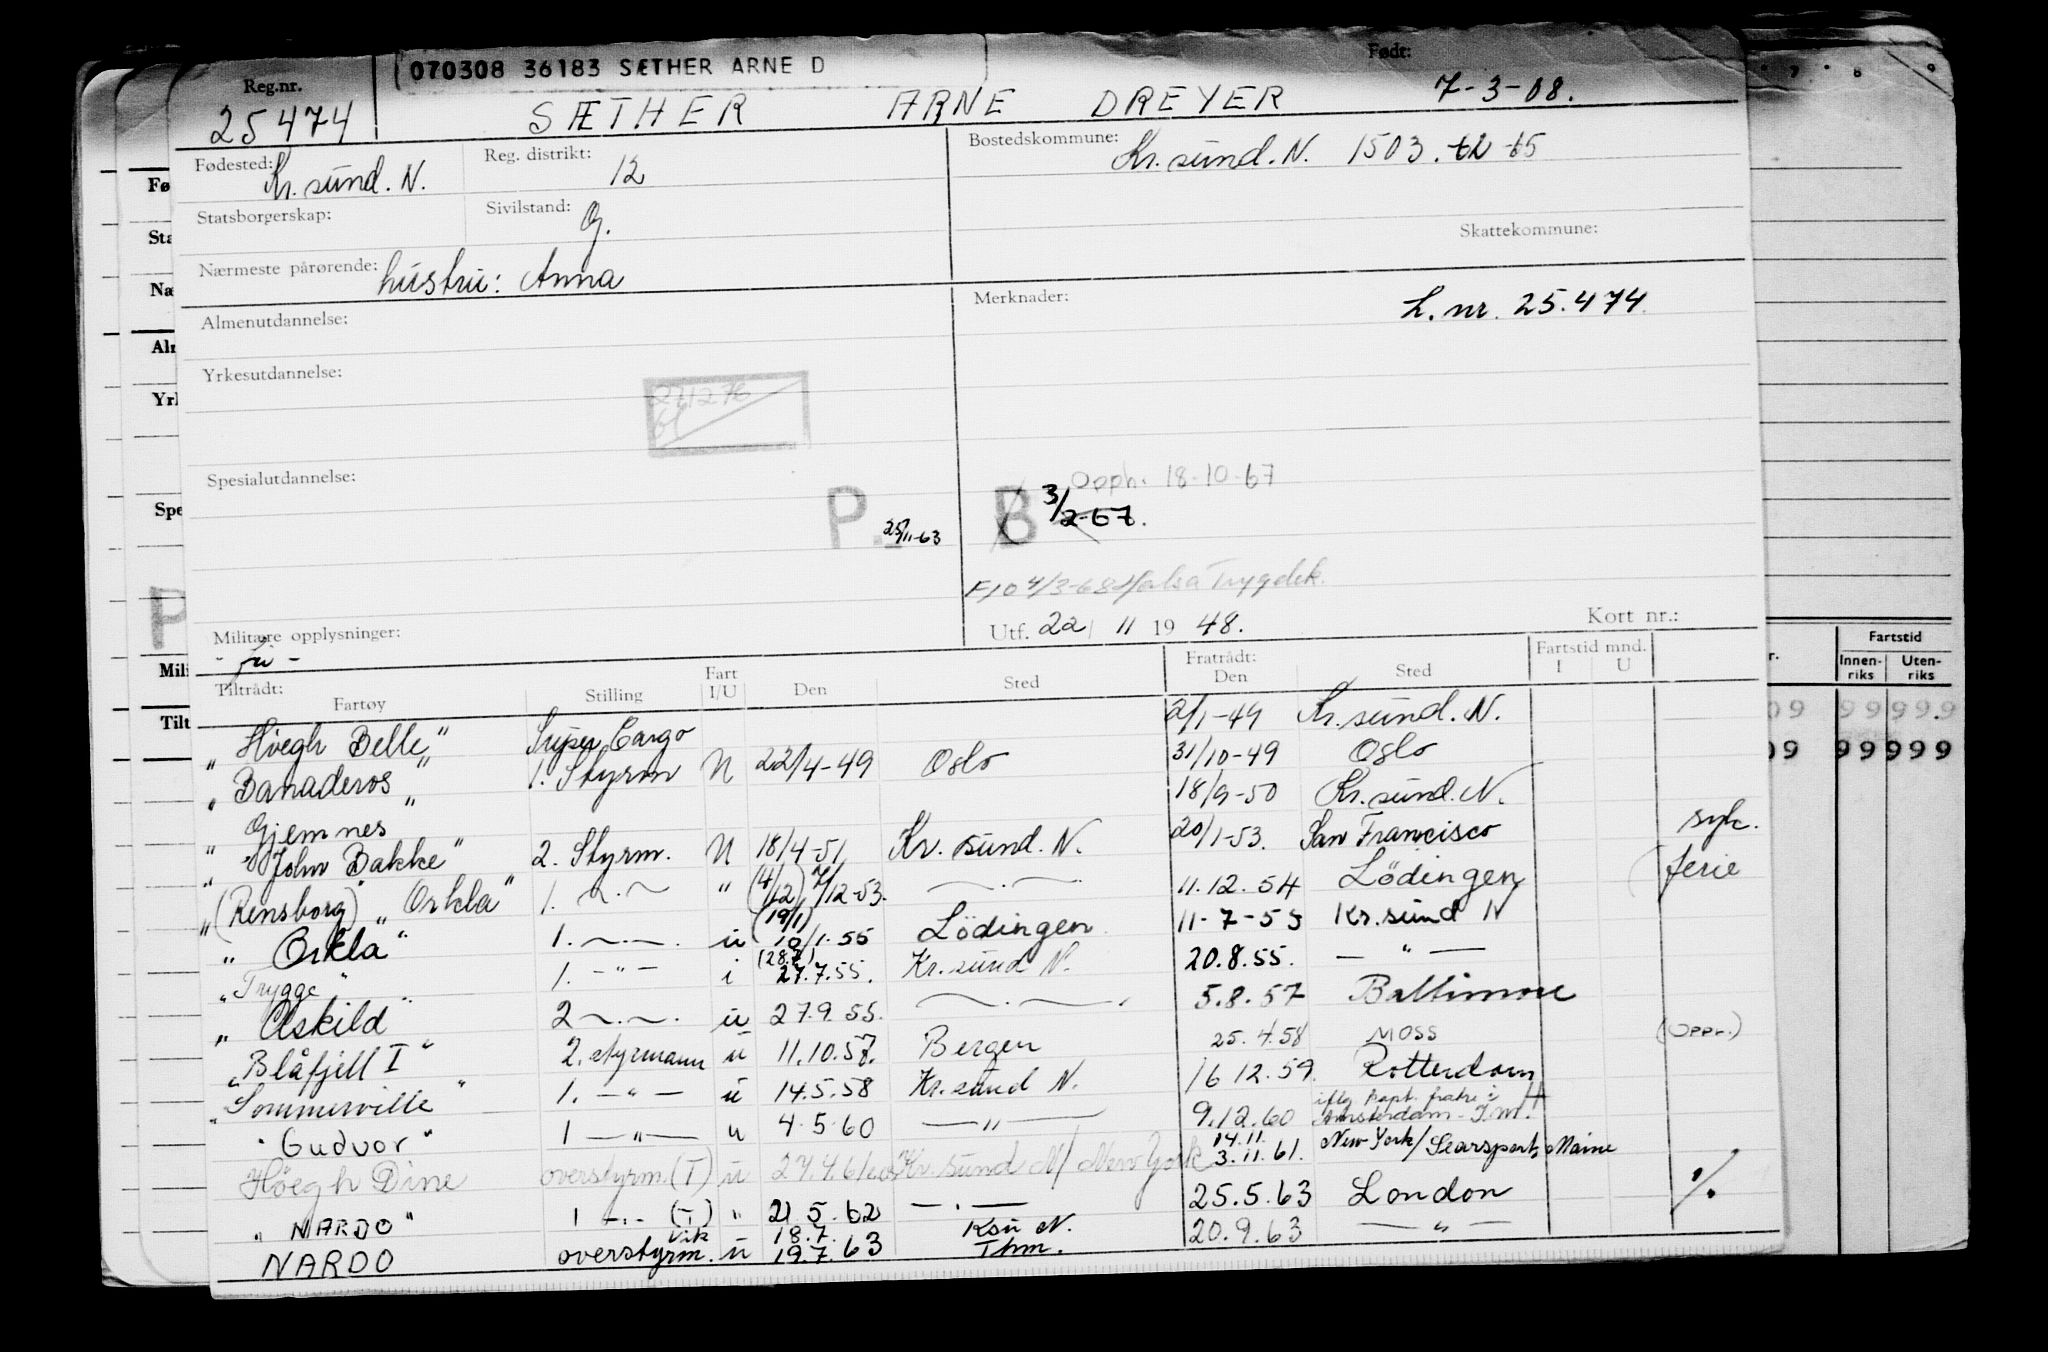 070308 36183 SÆTHER ARNE D
Reg.nr. 25474
SÆTHER ARNE DREYER
Født: 7-3-08.
Fødested: Kr. sund. N.
Reg. distrikt: 12
Bostedskommune: Kr. sund. N. 1503.
Statsborgerskap:
Sivilstand: G.
Skattekommune:
Nærmeste pårørende: hustru: Anna
Almenutdannelse:
Merknader: L. nr. 25.474.
Yrkesutdannelse:
Spesialutdannelse:
P. 25/11-63
B 3/2-67.
Opph. 18-10-67
F10 4/3-68 Halsa Trygdek.
Militære opplysninger:
Utf. 22/ 11 19 48.
Kort nr.:
Tiltrådt: Fartøy Stilling Fart I/U Den Sted Fratrådt: Den Sted Fartstid mnd. I U
"Höegh Belle" Super Cargo 2/1-49 Kr. sund. N.
"Banaderos" 1. Styrm U 22/4-49 Oslo 31/10-49 Oslo
"Gjemnes" 18/9-50 Kr. sund. N.
"John Bakke" 2. Styrm. U 18/4-51 Kr. sund. N. 20/1-53. San Francisco syk.
"(Rensborg) "Orkla" 1. ~.~ " (4/12) 7/12-53. —.— 11.12.54 Lödingen ferie
"Orkla" 1. ~.~. u (19/1) 10/1.55 Lödingen 11-7-55 Kr. sund N
"Trygge" 1. -"- i (28.7) 27.7.55. Kr. sund N. 20.8.55. — " —
"Askild" 2 ~.~. u 27.9.55. —.—. 5.8.57 Baltimore
"Blåfjell I" 2. styrmann u 11.10.57. Bergen 25.4.58 MOSS (Oppr.)
"Sommerville" 1. -"- u 14.5.58 Kr. sund N. 16 12.59. Rotterdam
"Gudvor" 1 —"— u 4.5.60 —"— 9.12.60 iflg kapt. fratr. i Amsterdam
Höegh Dine overstyrm. (T) u 27.4.61 Kr. sund N/ New York 14.11. 3.11.61. New York/ Searsport, Maine
"NARDO" 1 -.- (T) " 21 5.62 —.— 25.5.63 London %
NARDO Vik overstyrm. u 18.7. 19.7.63 Ksu N. Thm. 20.9.63 — " —
Fø
Sta
Næ
Aln
Yrk
Spe
P
Mili
Tilt
Fartstid
Innen-riks Uten-riks
09 99 999
09 99 999